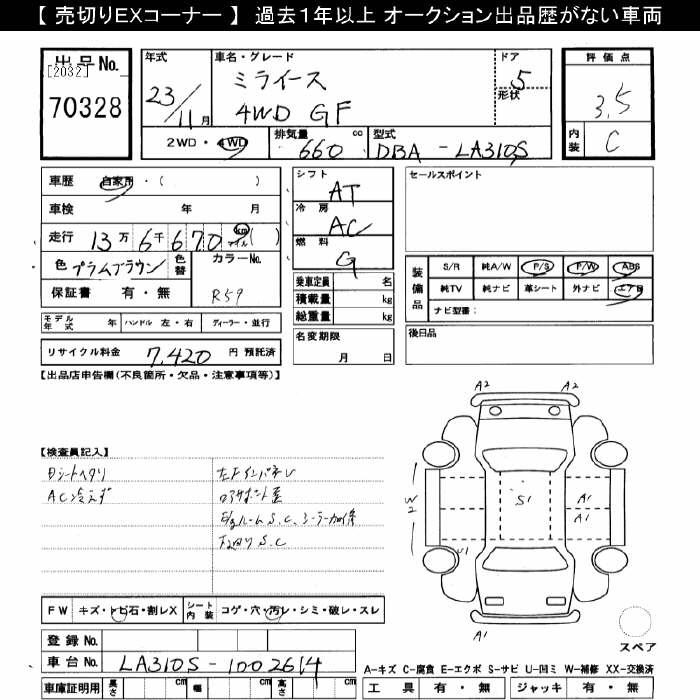 【 売切りEXコーナー 】 過去1年以上 オークション出品歴がない車両
出品No.
[2032]
70328
年式
23/11月
車名・グレード
ミライース
4WD GF
ドア
形状
5
評価点
3.5
内装
C
2WD・4WD
排気量
660 cc
型式
DBA - LA310S
車歴 自家用・( )
車検 年 月
走行 13万 6千 670 km マイル ( )
色 プラムブラウン
色替
カラーNo.
R59
保証書 有・無
モデル年式 年
ハンドル 左・右
ディーラー・並行
リサイクル料金 7,420 円 預託済
シフト
AT
冷房
AC
燃料
G
乗車定員 名
積載量 kg
総重量 kg
名変期限
月 日
セールスポイント
装備品
S/R 純A/W P/S P/W ABS
純TV 純ナビ 革シート 外ナビ エアB
ナビ型番:
後日品
【出品店申告欄(不良箇所・欠品・注意事項等)】
【検査員記入】
AC冷えず
下廻り S.C
A2
A2
W2
S1
A1
A1
A1
FW キズ・トビ石・割レX
シート内装 コゲ・穴・汚レ・シミ・破レ・スレ
スペア
登録 No.
車台 No. LA310S-1002614
車庫証明用 長さ cm 幅 cm 高さ cm
A−キズ C−腐食 E−エクボ S−サビ U−凹ミ W−補修 XX−交換済
工具 有・無 ジャッキ 有・無